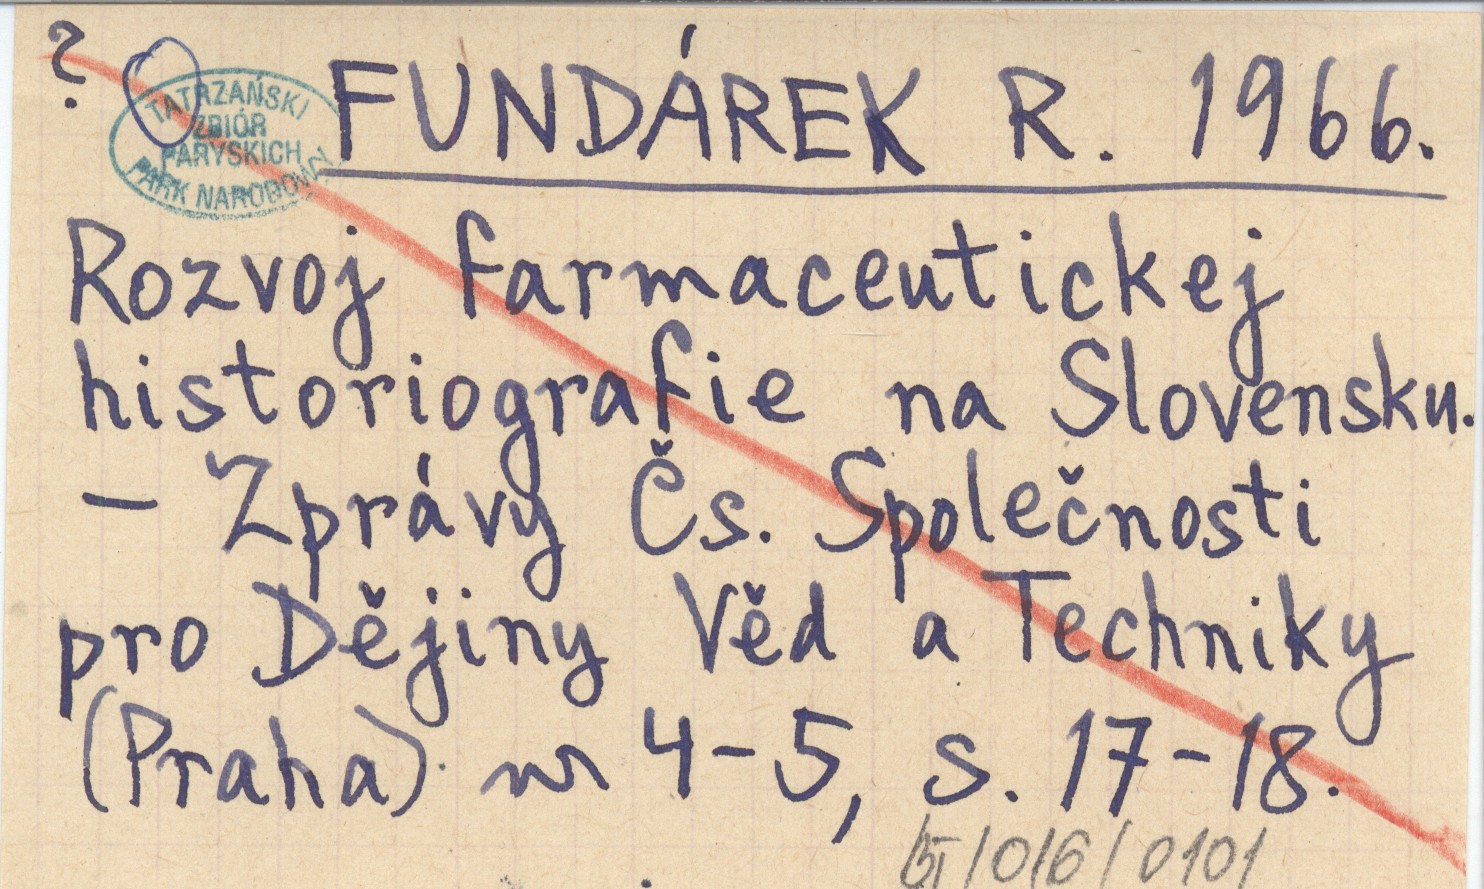 ?
TATRZAŃSKI
ZBIÓR
PARYSKICH
PARK NARODOWY
FUNDÁREK R. 1966.
Rozvoj farmaceutickej
historiografie na Slovensku.
– Zprávy Čs. Společnosti
pro Dějiny Věd a Techniky
(Praha). nr 4–5, s. 17–18.
/016/0101